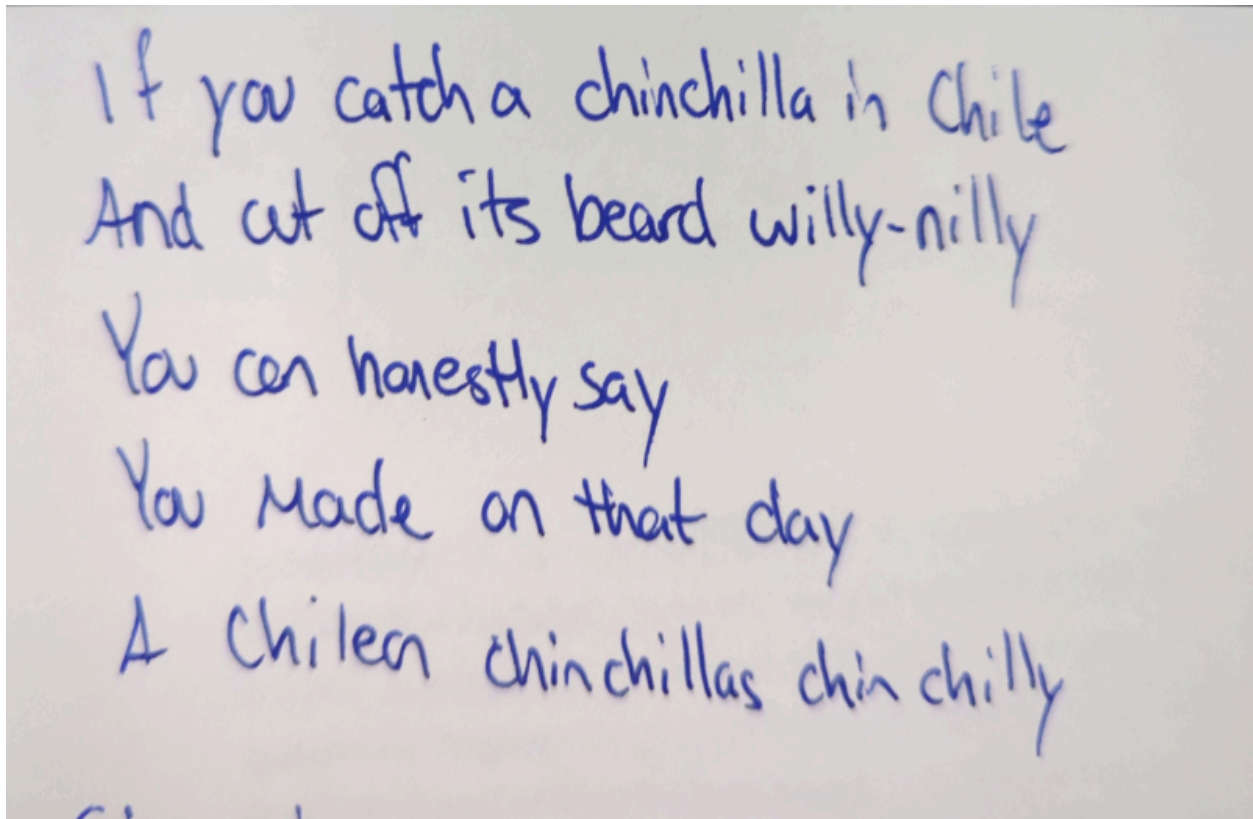 If you catch a chinchilla in Chile
And cut off its beard willy-nilly
You can honestly say
You Made on that day
A Chilean chinchillas chin chilly